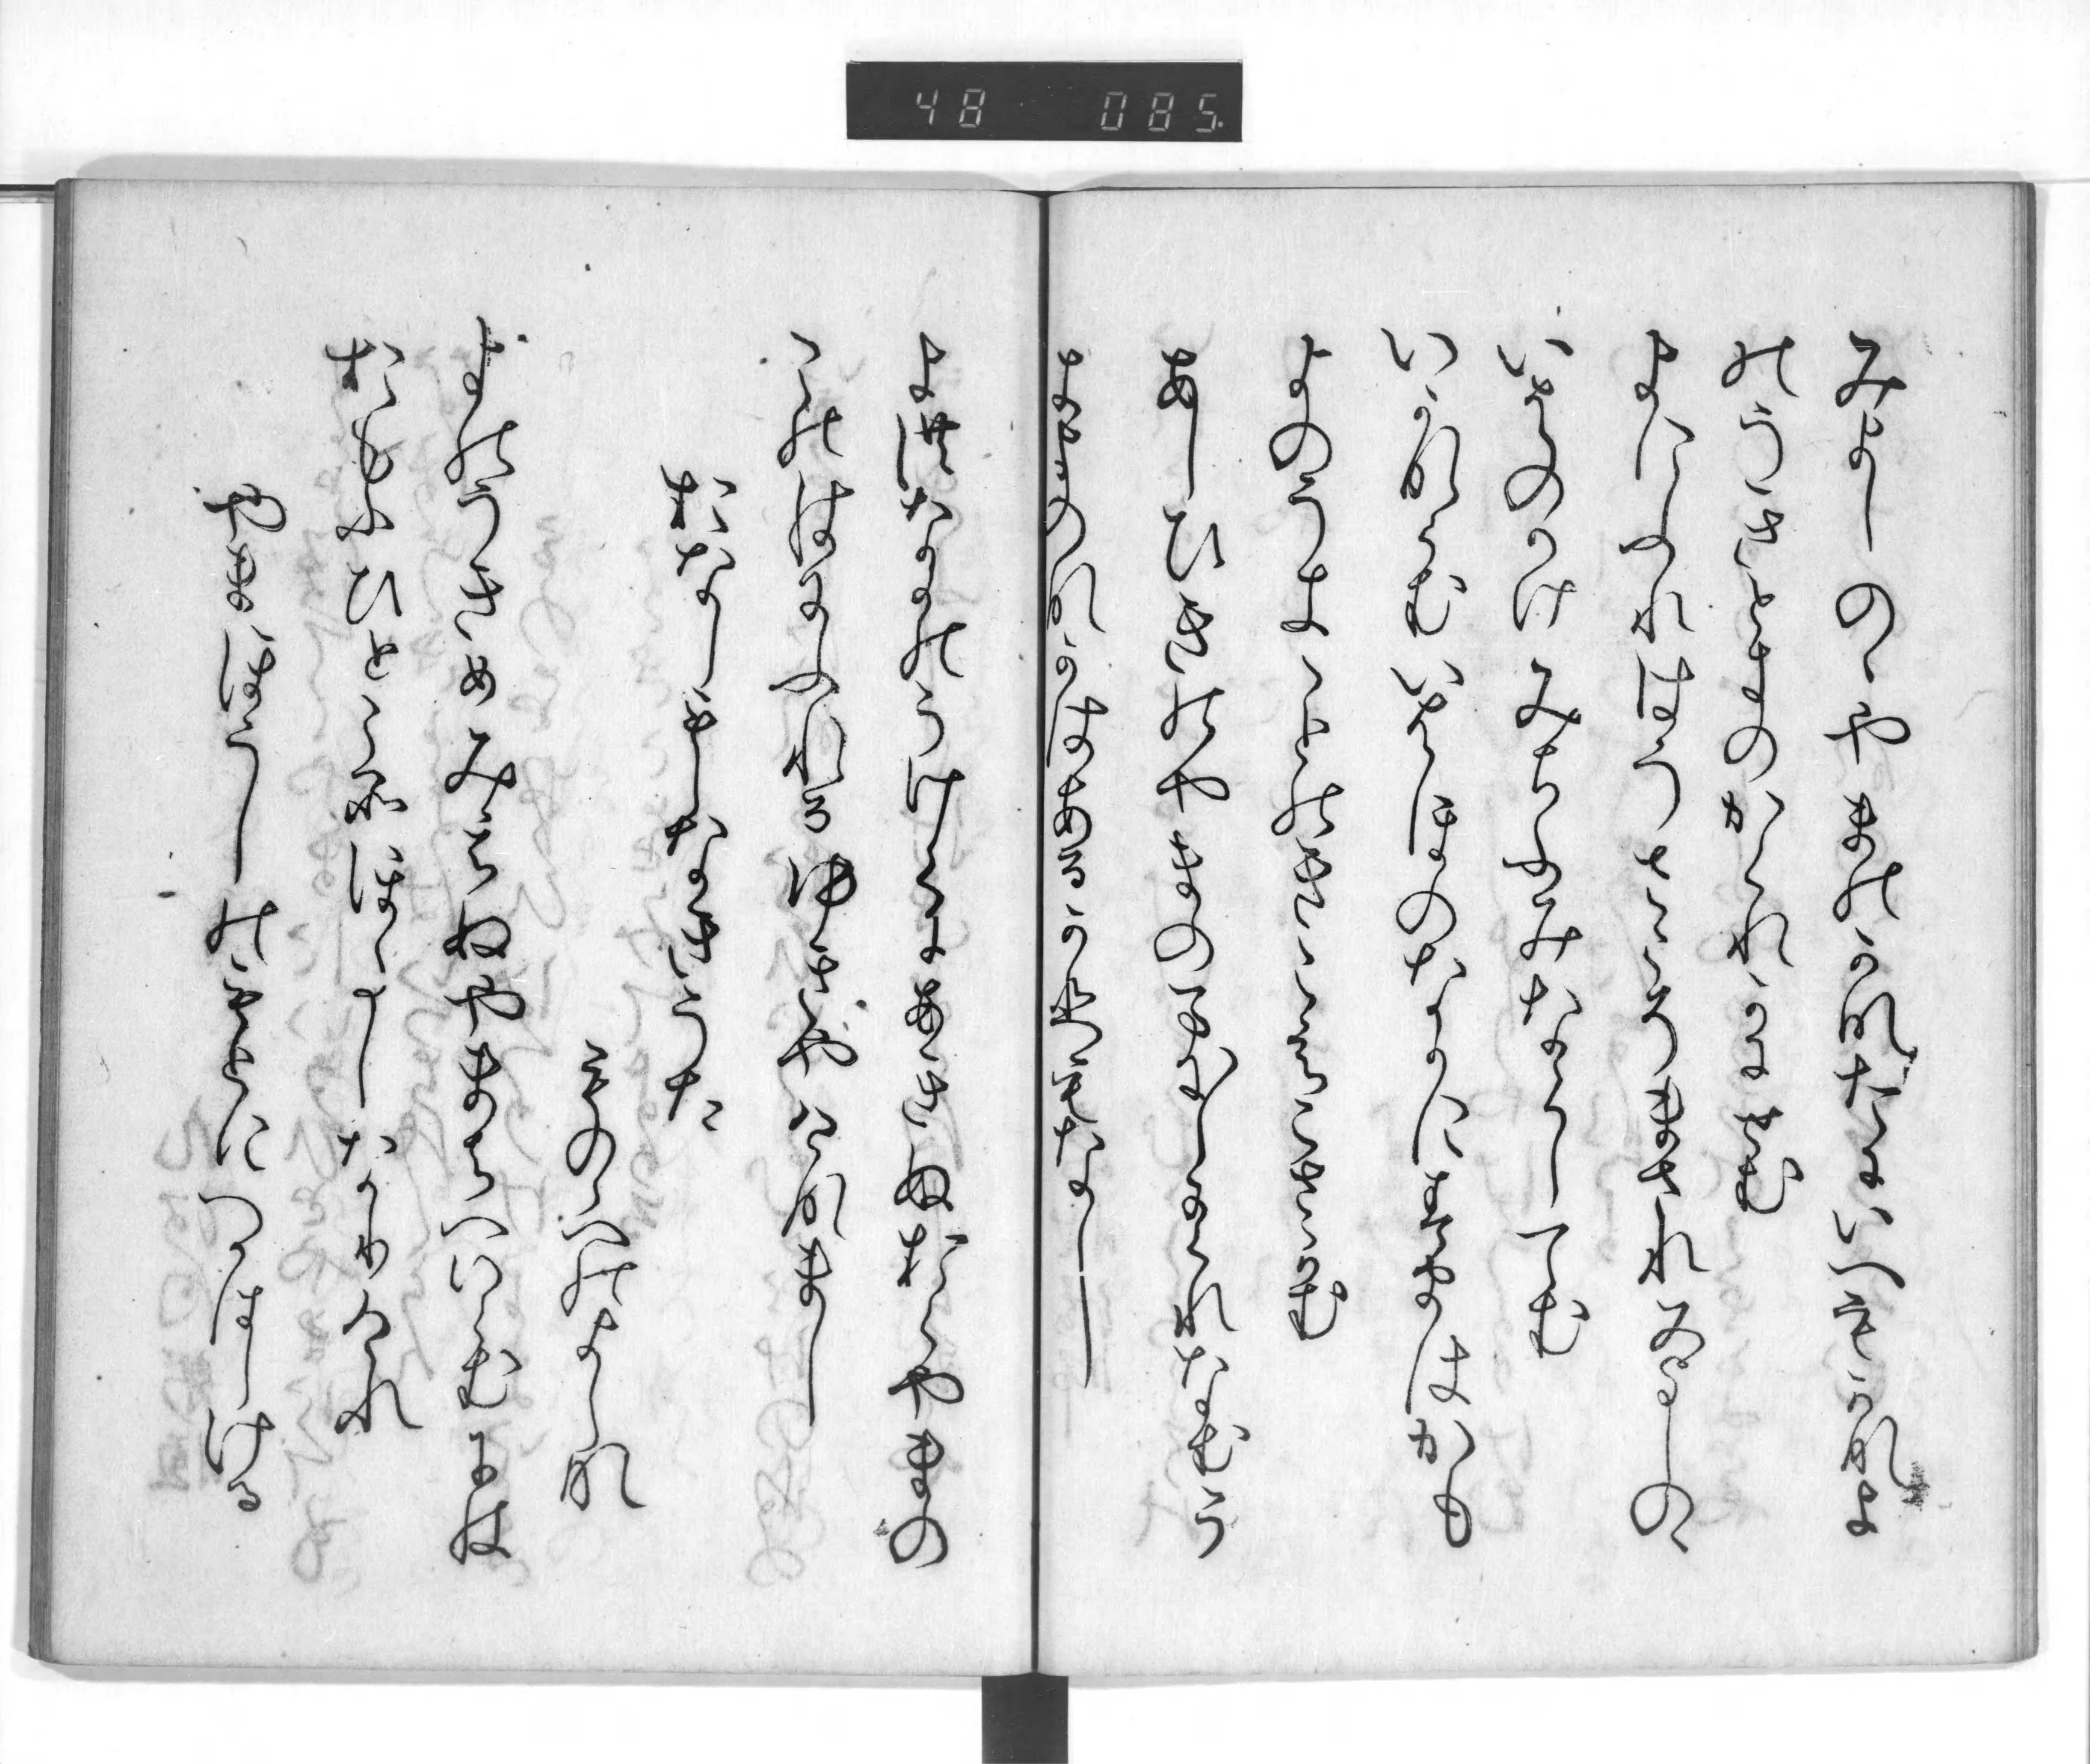 48 085
みよしのゝやまのあなたにやともかな
よのうきときのかくれかにせむ
よにふれはうさこそまされみよしのゝ
いはのかけみちふみならしてむ
いかならむいはほのなかにすまはかは
よのうきことのきこえこさらむ
あしひきのやまのまに〳〵かくれなむう
きよのなかはあるかひもなし
よのなかのうけくにあきぬおくやまの
このはにふれるゆきやけなまし
おなしもしなきうた
ものゝへのよしな
よのうきめみえぬやまちへいらむには
おもふひとこそほたしなりけれ
やまのほうしのもとにつかはしける